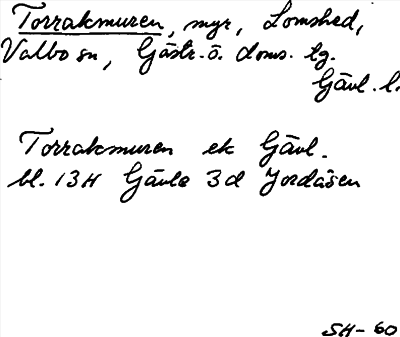 Torrakmuren, myr, Lomshed,
Valbo sn, Gästr. ö. doms. tg.
Gävl. l.
Torrakmuren ek Gävl.
bl. 13H Gävle 3d Jordåsen
SH-60